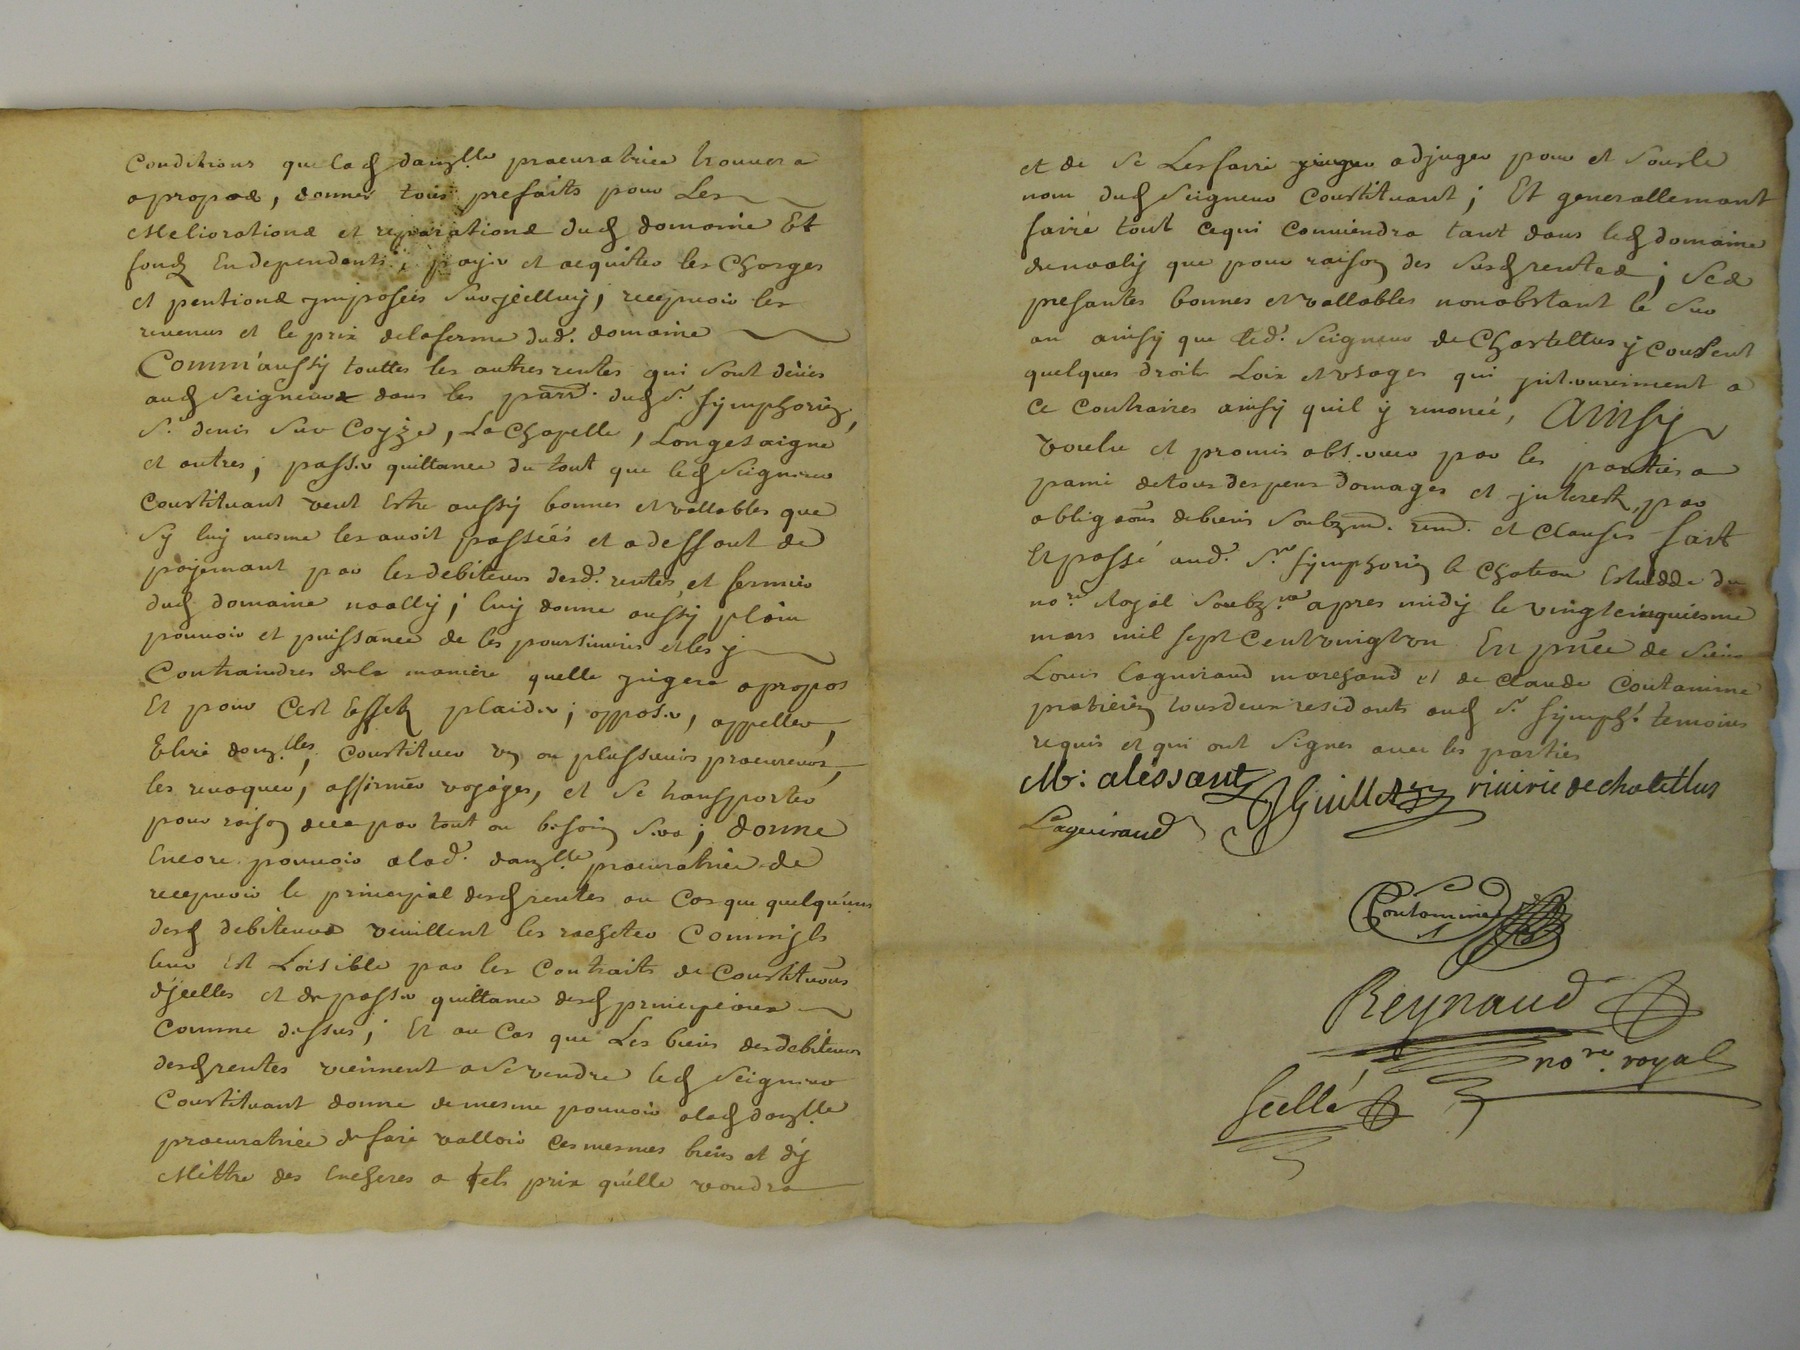 Conditions que lad damlle procuratrice trouvera
a propos, donner tous prefaits pour Les
Meliorations et reparations dud domaine Et
fond En dependants; payer et acquiter les Charges
et pentions ymposées sur jcelluy; recepvoir les
revenus et le prix de la ferme dud. domaine
Comm'aussy touttes les autres rentes qui sont dües
aud Seigneur dans les parr. dud St. Symphorien,
St. denis sur Coyze, La Chapelle, Longesaigne
et autres; passer quittance du tout que led Seigneur
Constituant veut Estre aussy bonnes et vallables que
sy luy mesme les avoit passéés et a deffaut de
payemant par les debiteurs desd. rentes, et fermier
dud domaine noally; luy donne aussy plain
pouvoir et puissance de les poursuivre et les y
Contraindres de la manière quelle jugera a propos
Et pour Cest Effet plaider; opposer, appeller,
Elire domlles; Constituer un ou plussieurs procureurs,
les revoquer, affirmer voyages, et se transporter
pour raison de ce par tout ou besoin sera; donne
Encore pouvoir a lad. damlle procuratrice de
recepvoir le principal desd rentes au Cas que quelqu'uns
desd debiteurs veuillent les rachetter Comm'jls
leur Est Loisible par les Contraits de Constituons
djcelles et de passer quittance desd principeaux
Comme dessus; Et au Cas que Les biens des debiteurs
desd rentes viennent a se vendre led Seigneur
Constituant donne de mesme pouvoir a lad damlle
procuratrice de faire valloir Ces mesmes biens et d'y
Mettre des Encheres a tels prix qu'elle voudra
et de se Les faire adjuger pour et sous le
nom dud Seigneur Constituant; Et generallemant
faire tout ce qui Conviendra tant dans led domaine
de noally que pour raison des susd rentes; Ses
presantes bonnes et vallables nonobstant le sur
an ainsy que led. Seigneur de Chastellus y Consent
quelques droits Loix et usages qui jnterviennent a
Ce Contraires ainsy quil y renonce, Ainsy
voulu et promis observer par les parties a
paine de tous despens domages et jnterest, par
obligaons de biens soubzm. renon. et Clauses fait
Et passé aud. St. Symphorien le Chateau Estude du
nore. Royal soubzne apres midy le vingt cinquiesme
mars mil sept Cent vingt un En pnce de sieur
Louis Laguiraud marchand et de Claude Coutamine
praticien tous deux residants aud St. Symph. temoins
requis et qui ont Signes avec les parties
M: alessant JGuillet riuirie de chatellus
Laguiraud
Coutamine
Reynaud
nore. royal
Scellé